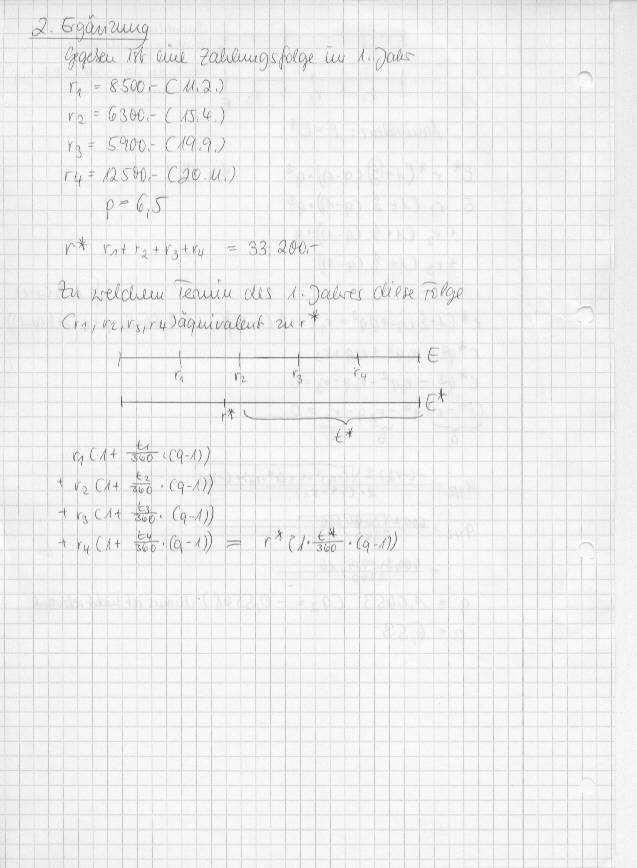 2. Ergänzung
Gegeben ist eine Zahlungsfolge im 1. Jahr
r1 = 8500.- (11.2.)
r2 = 6300.- (15.4.)
r3 = 5900.- (19.9.)
r4 = 12500.- (20.11.)
p = 6,5
r* r1 + r2 + r3 + r4 = 33.200.-
Zu welchem Termin des 1. Jahres diese Folge
(r1, r2, r3, r4) äquivalent zu r*
E
r1 r2 r3 r4
E*
r*
t*
r1 (1 + t1/360 · (q-1))
+ r2 (1 + t2/360 · (q-1))
+ r3 (1 + t3/360 · (q-1))
+ r4 (1 + t4/360 · (q-1)) = r* (1 · t*/360 · (q-1))